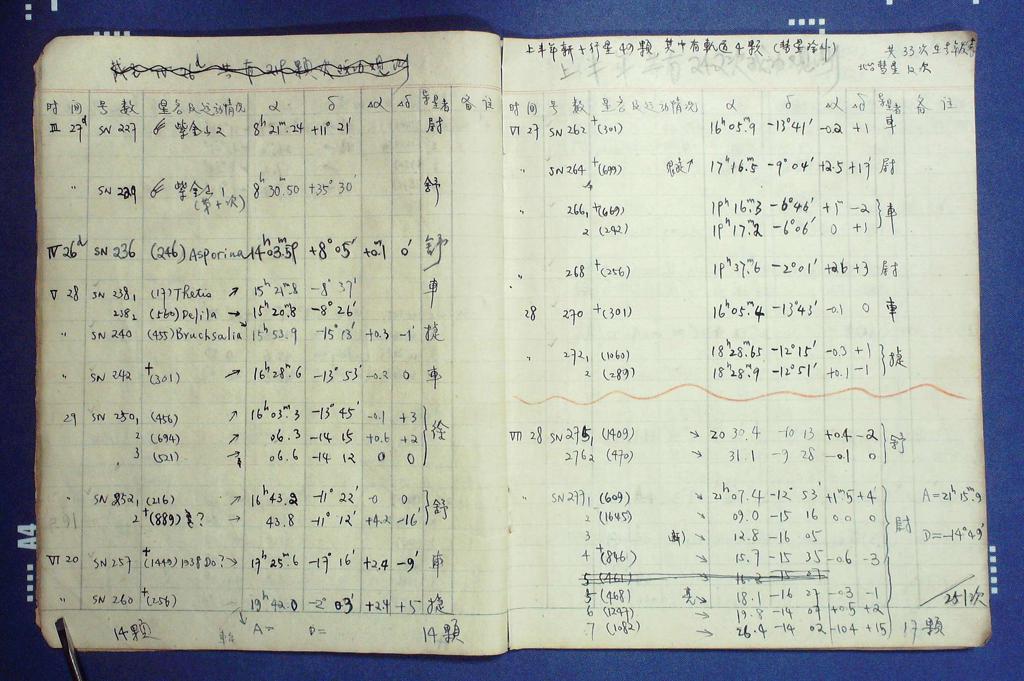 時間 号數 星名及运动情况 α δ Δα Δδ 导星者 备注
III 27d SN 227 紫金山2 8h 21m.24 +11° 21' 尉
〃 SN 229 紫金山1 8h 30m.50 +35° 30' 舒
(第十次)
IV 26d SN 236 (246) Asporina 14h 03m.59 +8° 05' +0.1 0' 舒
V 28 SN 238₁ (17) Thetis ↗ 15h 21m.8 -8° 37' 車
238₂ (560) Delila → 15h 20m.8 -8° 26'
〃 SN 240 (455) Bruchsalia 15h 53m.9 -15° 13' +0.3 -1' 捷
〃 SN 242 +(301) → 16h 28m.6 -13° 53' -0.2 0 車
29 SN 250₁ (456) ↗ 16h 03m.3 -13° 45' -0.1 +3 徐
2 (694) ↗ 06.3 -14 15 +0.6 +2
3 (521) 06.6 -14 12 0 0
〃 SN 252₁ (216) → 16h 43m.2 -11° 22' -0 0 舒
2 +(889) ? → 43.8 -11° 12' +4.2 -16'
VI 20 SN 257 +(1449) 1938 DO? → 17h 25m.6 -17° 16' +2.4 -9' 車
〃 SN 260 +(256) 19h 42m.0 -2° 03' +2.4 +5 捷
14顆 A= D= 14顆
上半年新十行星49顆, 其中有軌道4顆 (彗星除外) 共33次
彗星12次
時間 号數 星名及运动情况 α δ Δα Δδ 导星者 备注
VI 27 SN 262 +(301) 16h 05m.9 -13° 41' -0.2 +1 車
〃 SN 264 +(699) 17h 16m.5 -9° 04' +2.5 +17' 尉
〃 266₁ +(669) 19h 16m.3 -6° 46' +1 -2 車
2 (242) 19h 17m.2 -6° 06' 0 +1
〃 268 +(256) 19h 37m.6 -2° 01' +2.6 +3 尉
28 270 +(301) 16h 05m.4 -13° 43' -0.1 0 車
〃 272₁ (1060) 18h 28m.65 -12° 15' -0.3 +1 捷
2 (289) 18h 28m.9 -12° 51' +0.1 -1
VII 28 SN 275₁ (1409) ↘ 20 30.4 -10 13 +0.4 -2 舒
276₂ (470) ↘ 31.1 -9 28 -0.1 0
〃 SN 277₁ (609) ↘ 21h 07m.4 -12° 53' +1m5 +4' 尉 A=21h 15m.9
2 (1645) ↘ 09.0 -15 16 0.0 0
3 (新) ↘ 12.8 -16 05 D=-14° 49'
4 +(846) ↘ 15.7 -15 35 -0.6 -3
5 (461) ↘ 16.2 -15 07
5 (468) 亮 ↘ 18.1 -16 27 -0.3 -1 251次
6 (1247) ↘ 19.8 -14 07 +0.5 +2
7 (1082) → 26.4 -14 02 -104 +15 17顆
A4